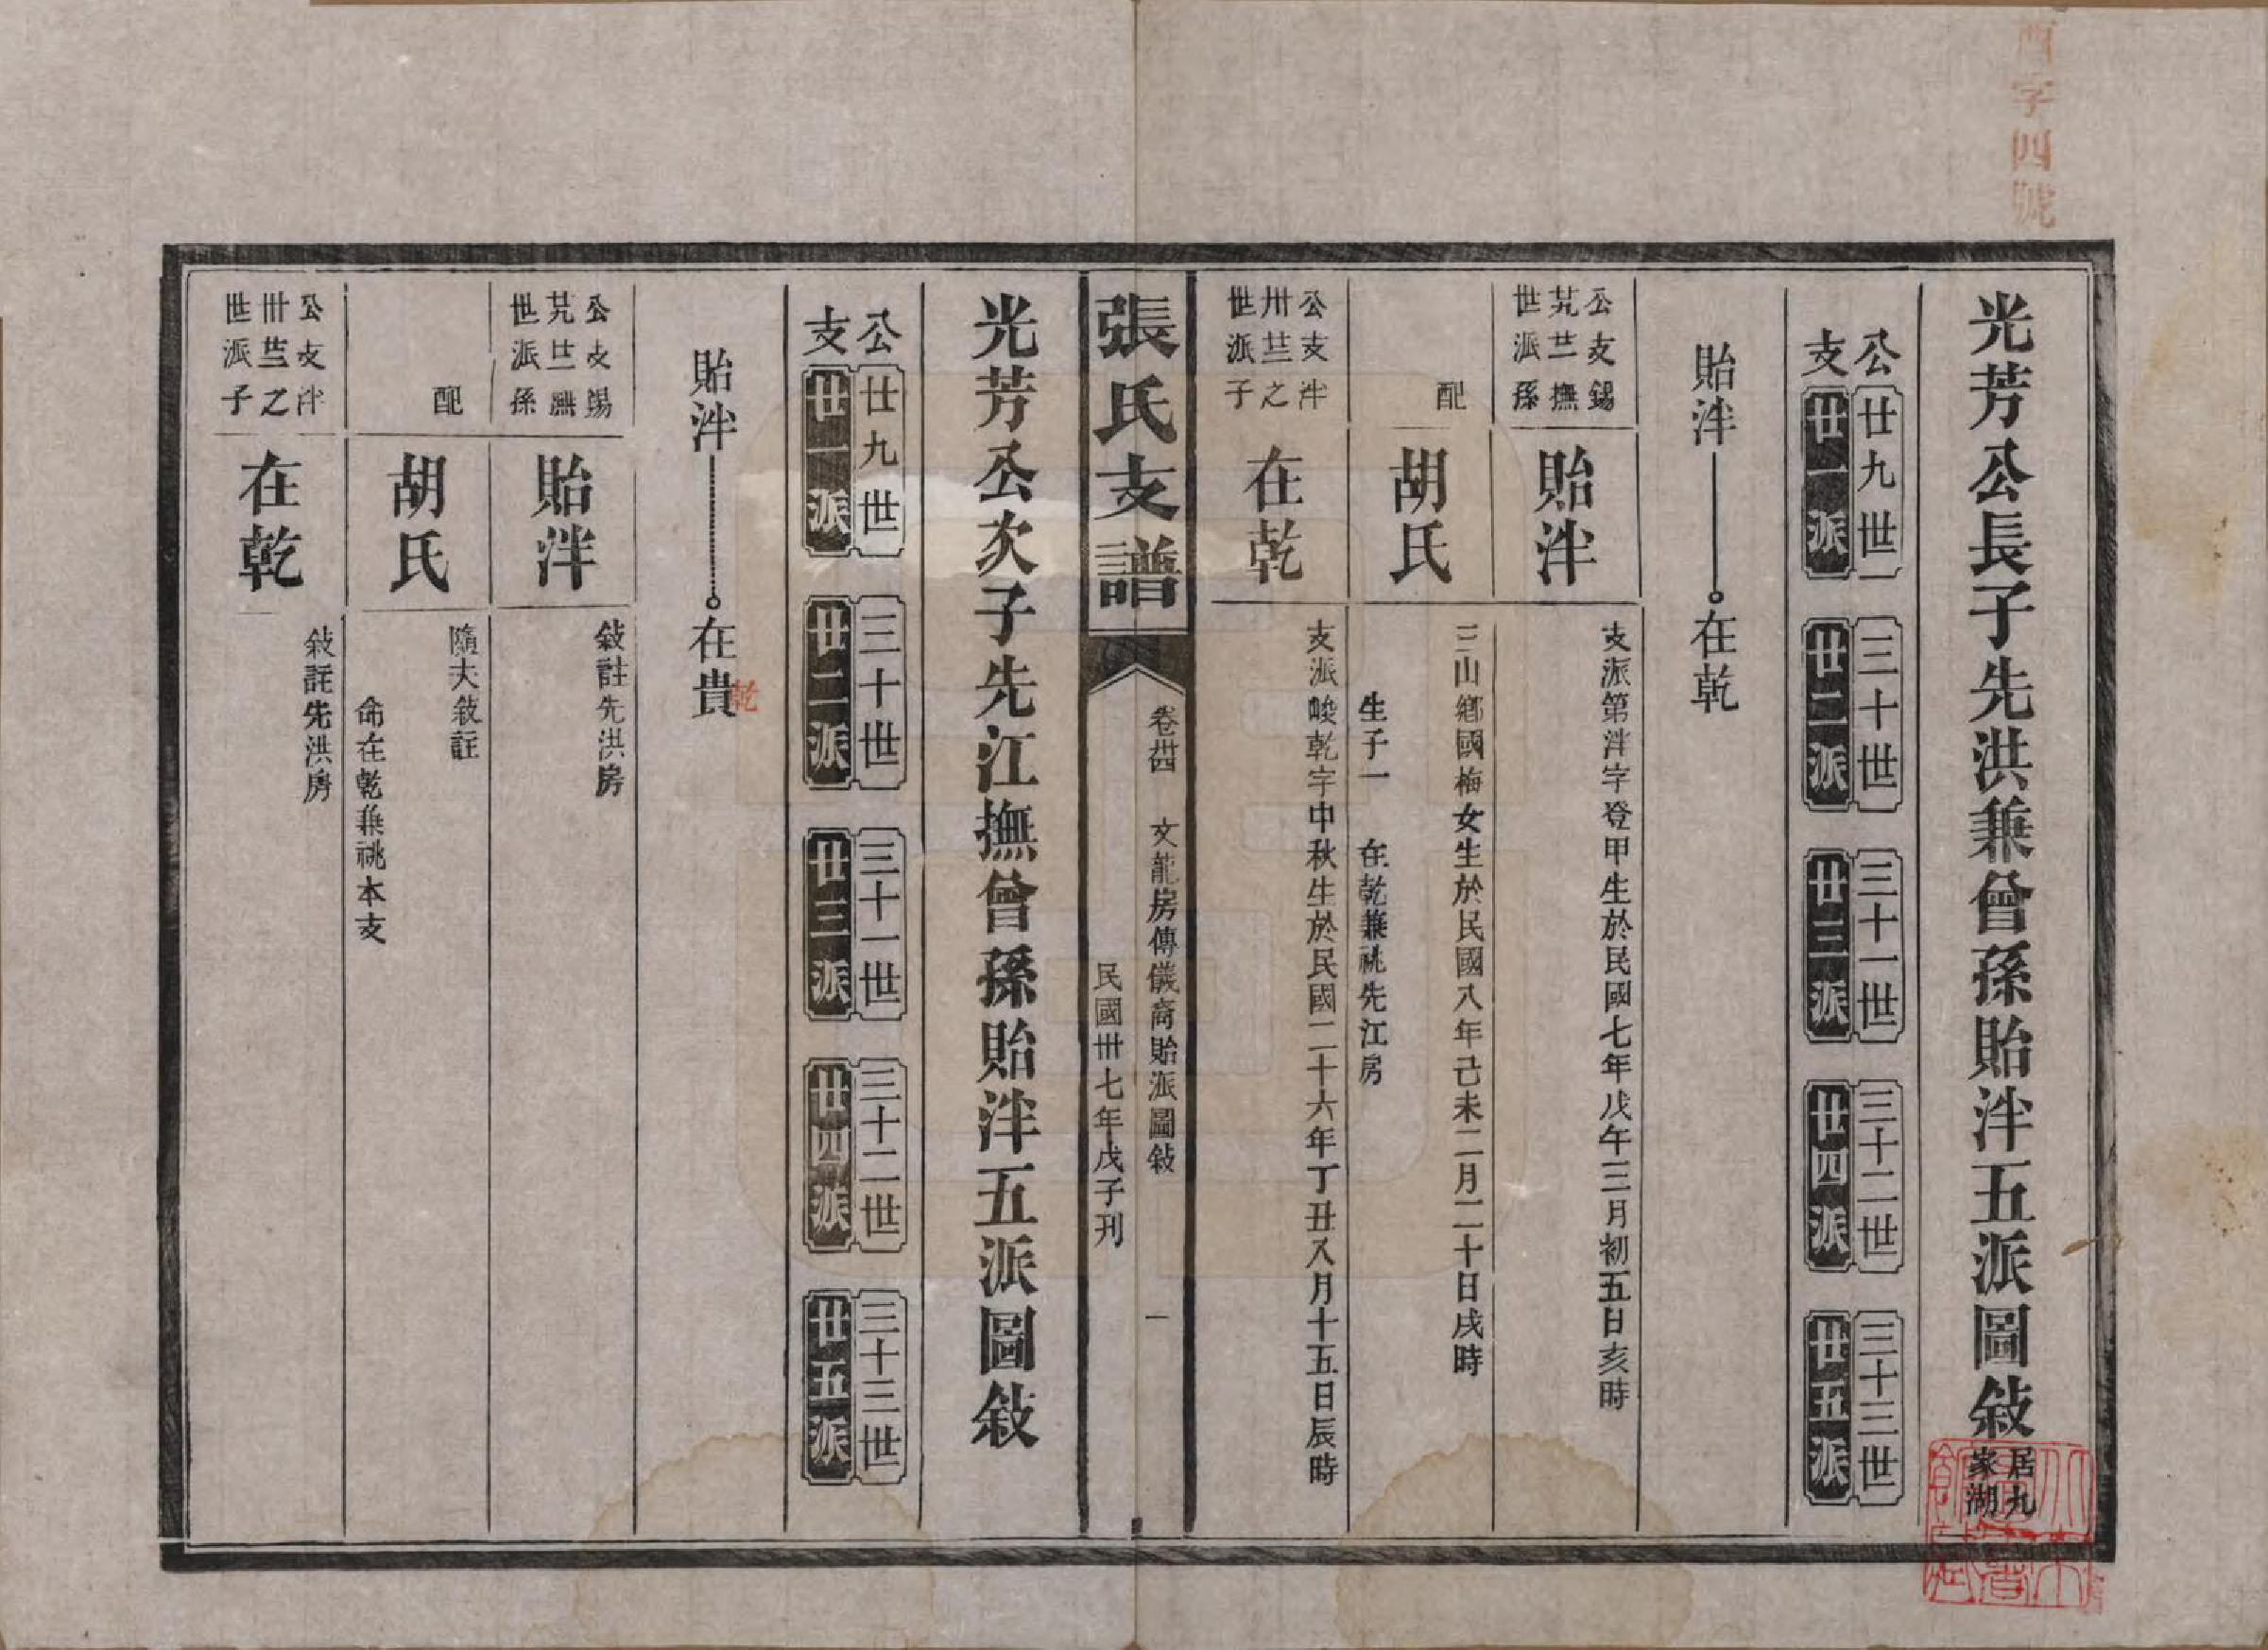 酉字四號
光芳公長子先洪兼曾孫貽泮五派圖敍
居九
家湖
公
支
廿九世
廿一派
三十世
廿二派
三十一世
廿三派
三十二世
廿四派
三十三世
廿五派
貽泮
在乾
公支錫
廿二撫
世派孫
貽泮
支派第泮字登甲生於民國七年戊午三月初五日亥時
配
胡氏
三山鄉國梅女生於民國八年己未二月二十日戌時
生子一 在乾兼祧先江房
公支泮
卅廿二之
世派子
在乾
支派峻乾字中秋生於民國二十六年丁丑八月十五日辰時
張氏支譜
卷卌四 文龍房傳儀裔貽派圖敍 一
民國卅七年戊子刊
光芳公次子先江撫曾孫貽泮五派圖敍
公
支
廿九世
廿一派
三十世
廿二派
三十一世
廿三派
三十二世
廿四派
三十三世
廿五派
貽泮
在貴
乾
公支錫
世派孫
貽泮
敍註先洪房
配
胡氏
隨夫敍註
命在乾兼祧本支
公支泮
世派子
在乾
敍註先洪房